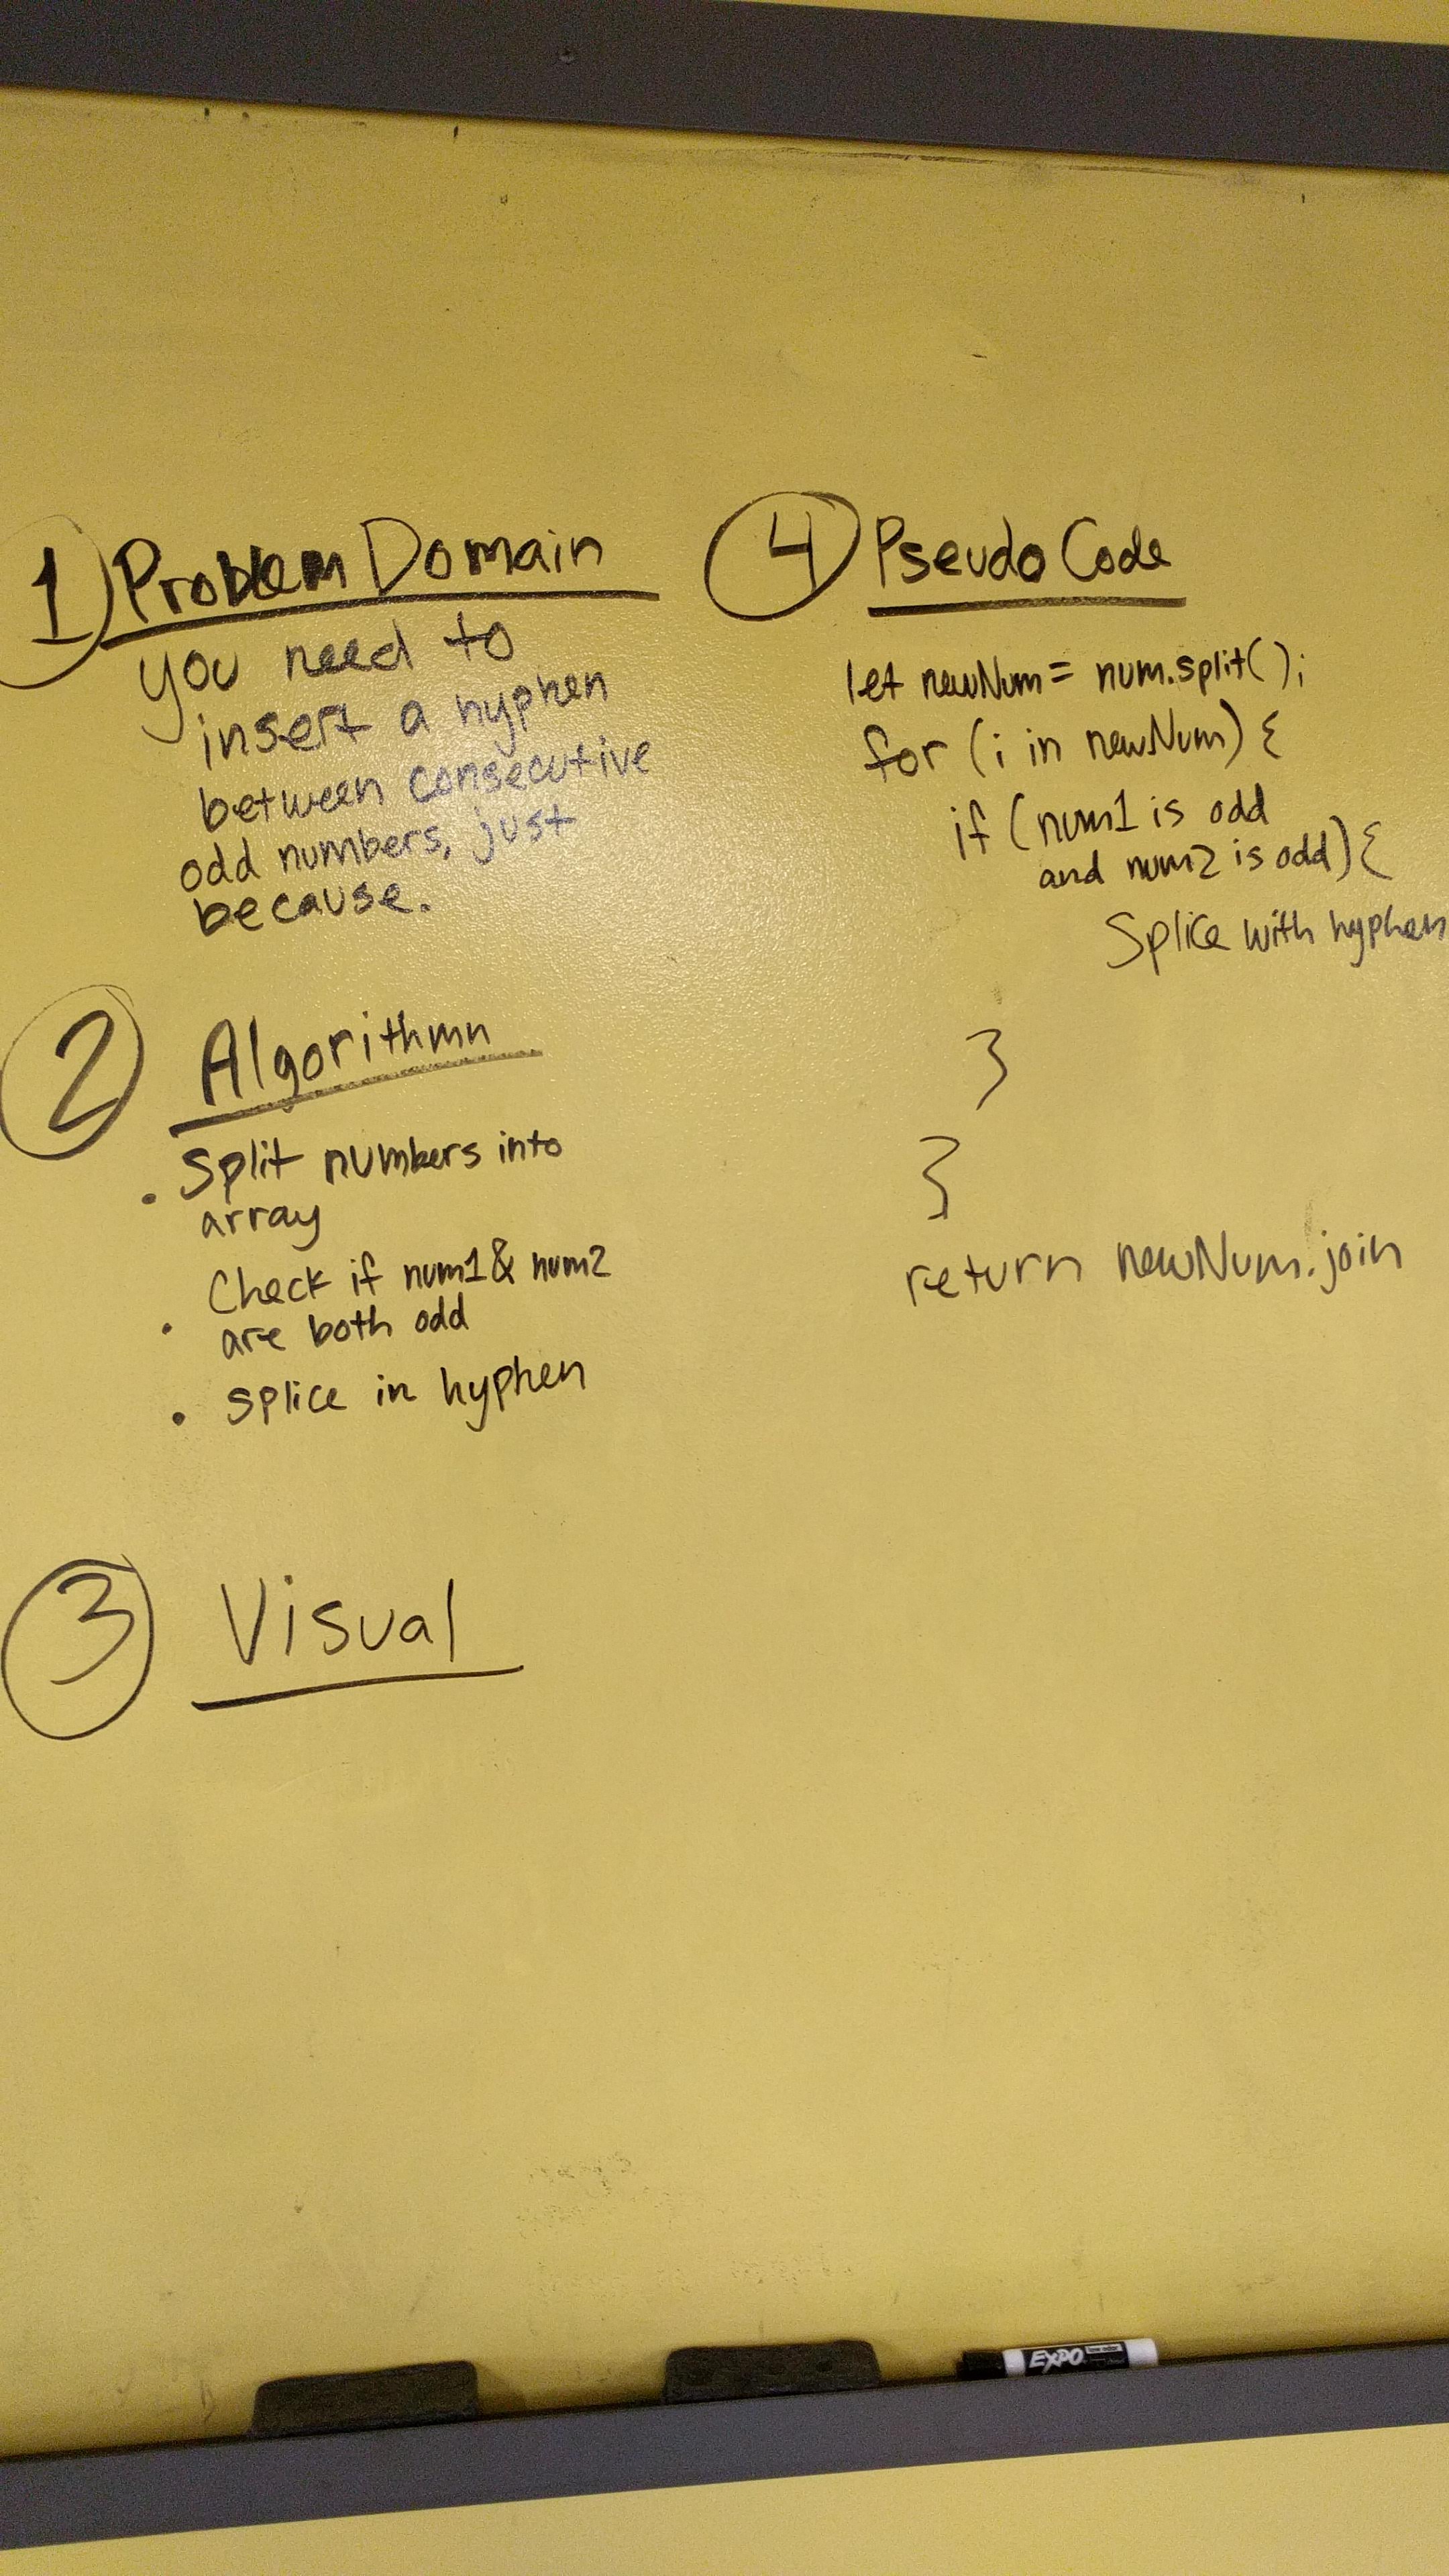 1 Problem Domain
you need to
insert a hyphen
between consecutive
odd numbers, just
because.
2 Algorithmn
• Split numbers into
array
• Check if num1 & num2
are both odd
• splice in hyphen
3 Visual
4 Pseudo Code
let newNum = num.split();
for (i in newNum) {
if (num1 is odd
and num2 is odd) {
Splice with hyphen
}
}
return newNum.join
EXPO